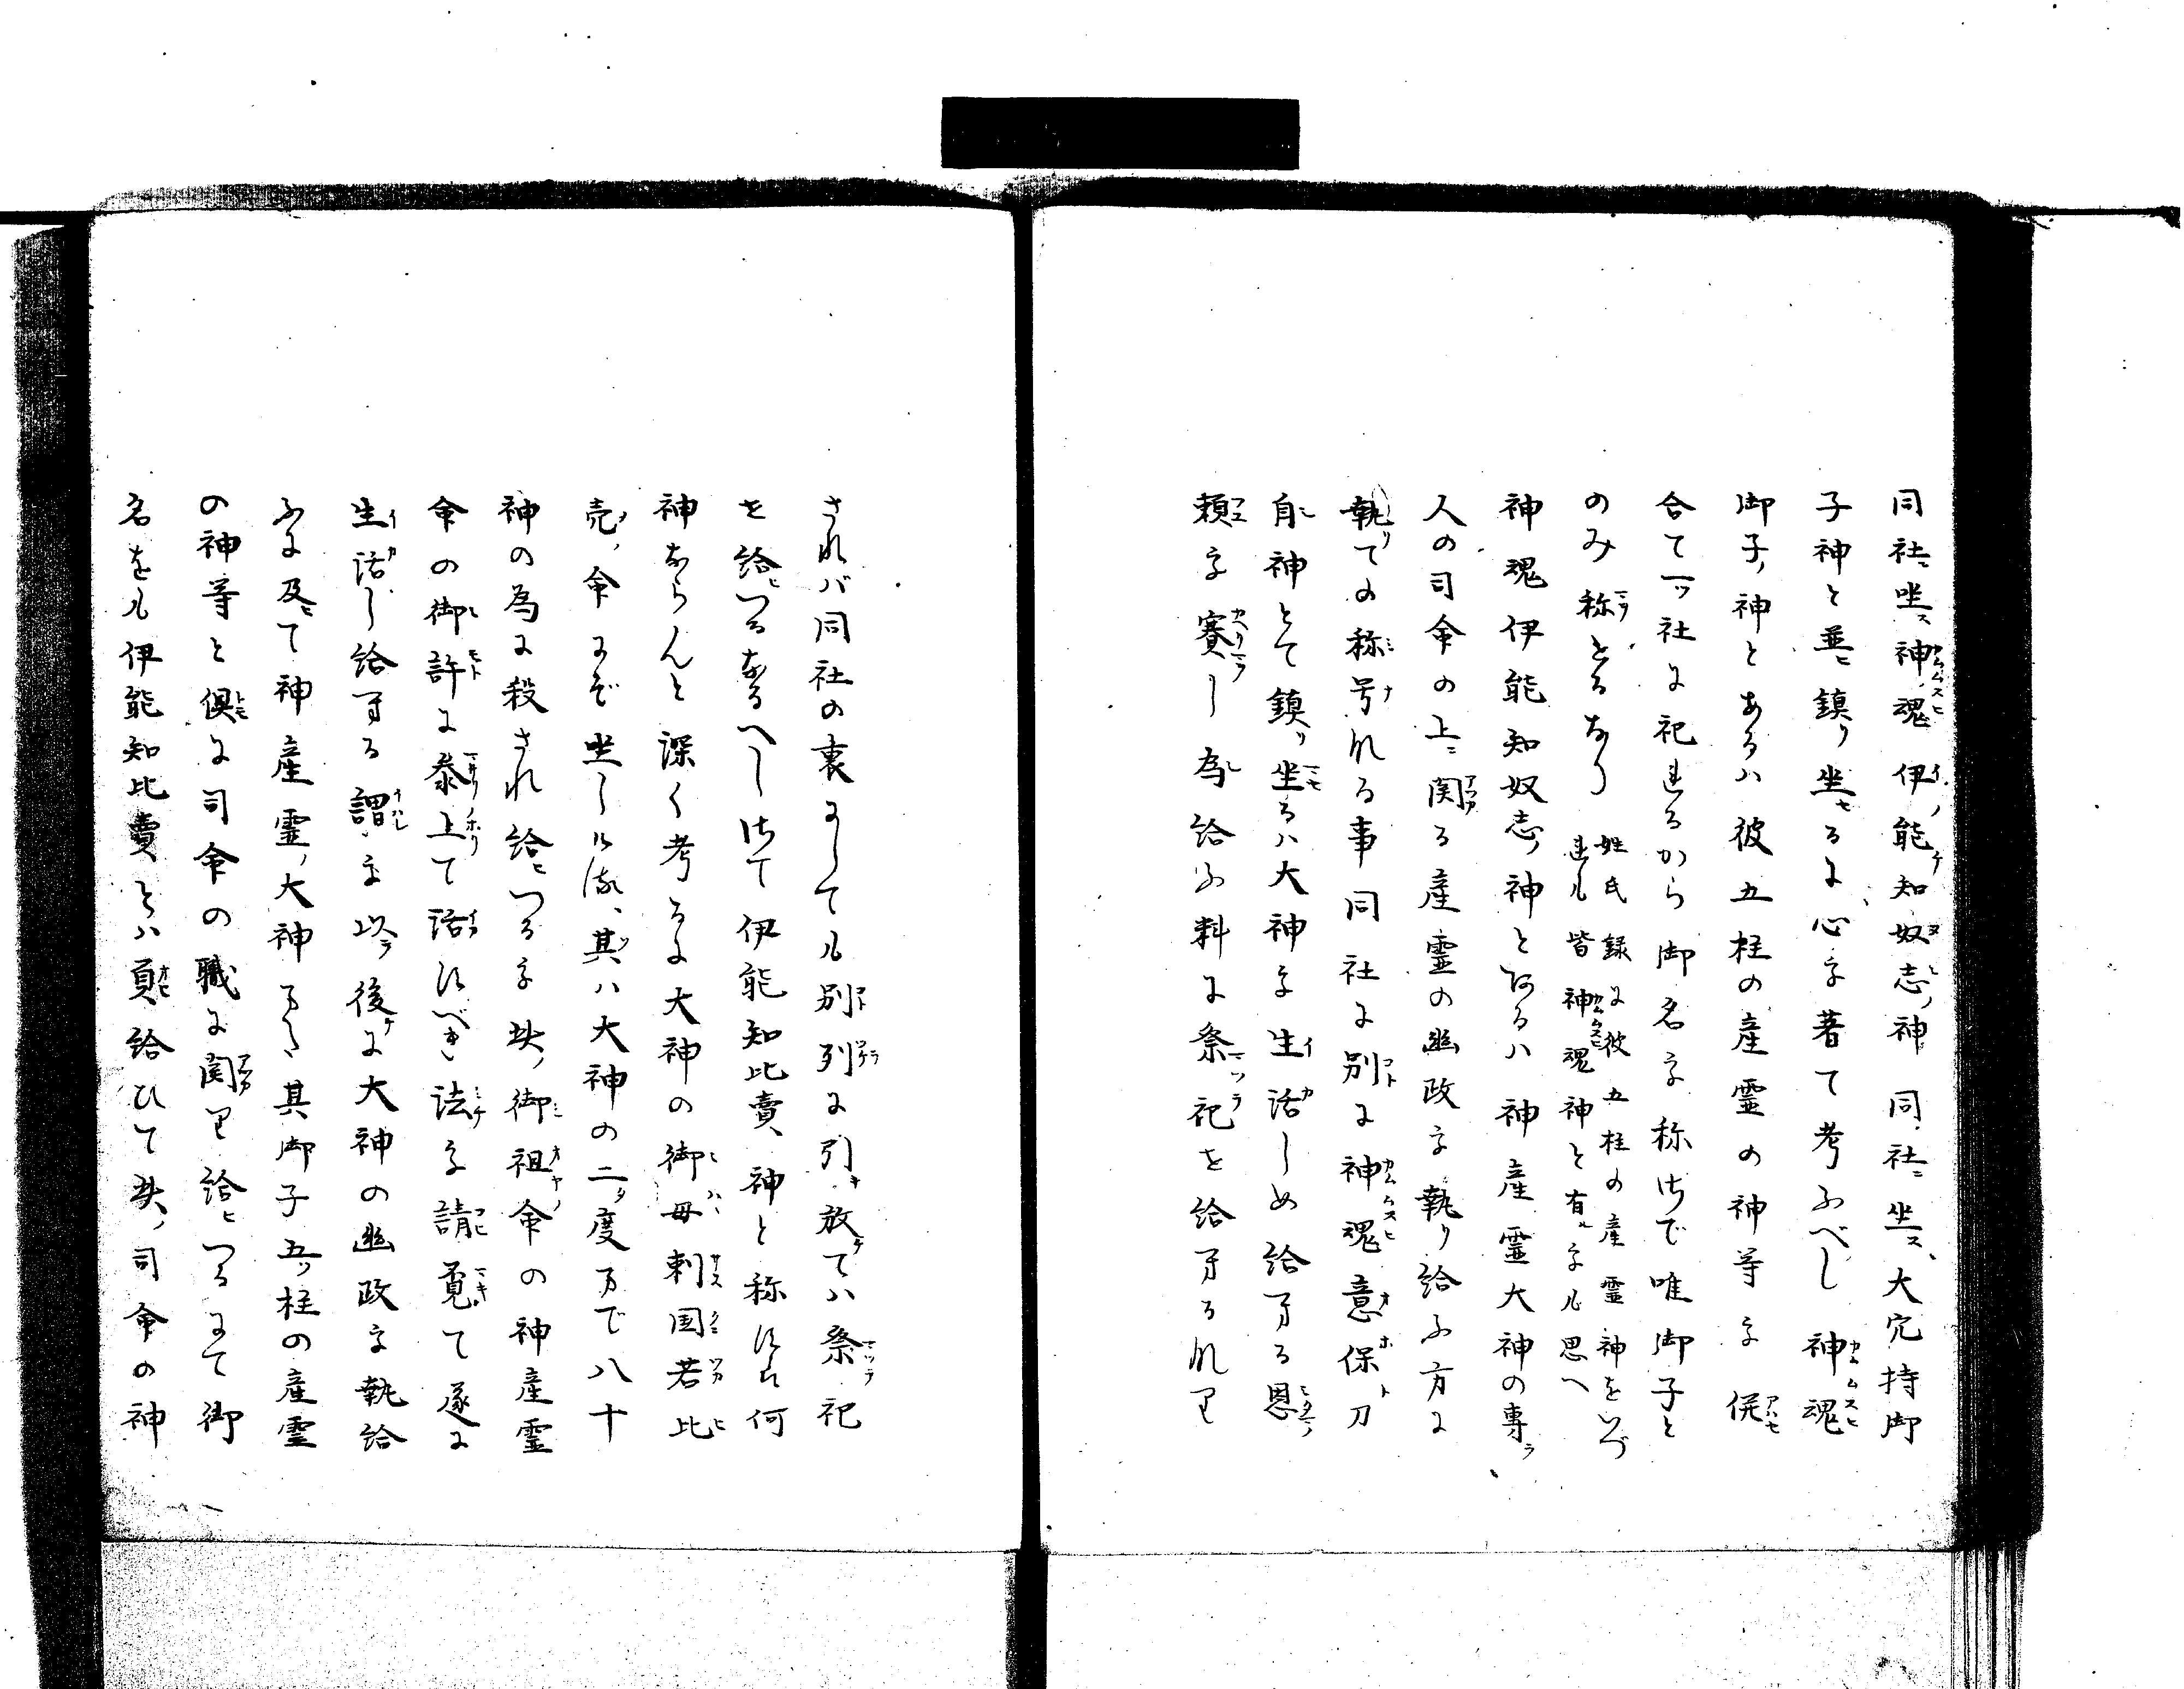 同社ニ坐ス神魂伊能知奴志ノ神同社ニ坐ス大穴持御
子神と並ニ鎮リ坐セるに心を著て考ふべし神魂
御子ノ神とあるハ彼五柱の産霊の神等を併
合て一ツ社に祀れるから御名を称さで唯御子と
のみ称せるなり
姓氏録に彼五柱の産霊神をいづ
れも皆神魂神と有ルをも思へ
神魂伊能知奴志ノ神とあるハ神産霊大神の専ラ
人の司命の上ニ関る産霊の幽政を執リ給ふ方に
執リての称号なる事同社に別に神魂意保刀
自神とて鎮リ坐るハ大神を生活しめ給へる恩
頼を賽し為給ふ料に祭祀を給へるなり
されバ同社の裏にしても別列に引キ放ケてハ祭祀
を給ヒつるなるへしさて伊能知比売ノ神と称せるハ何
神ならんと深く考るに大神の御母刺国若比
売ノ命にぞ坐しける其ハ大神の二タ度まで八十
神の為に殺され給ヒつるを其ノ御祖命の神産霊
命の御許に参上て活すべき法を請覓て遂に
生活し給へる謂を以テ後ケに大神の幽政を執給
ふに及ニて神産霊ノ大神また其御子五ツ柱の産霊
の神等と倶に司命の職に関り給ヒつるにて御
名をも伊能知比売とハ負給ひて其ノ司命の神